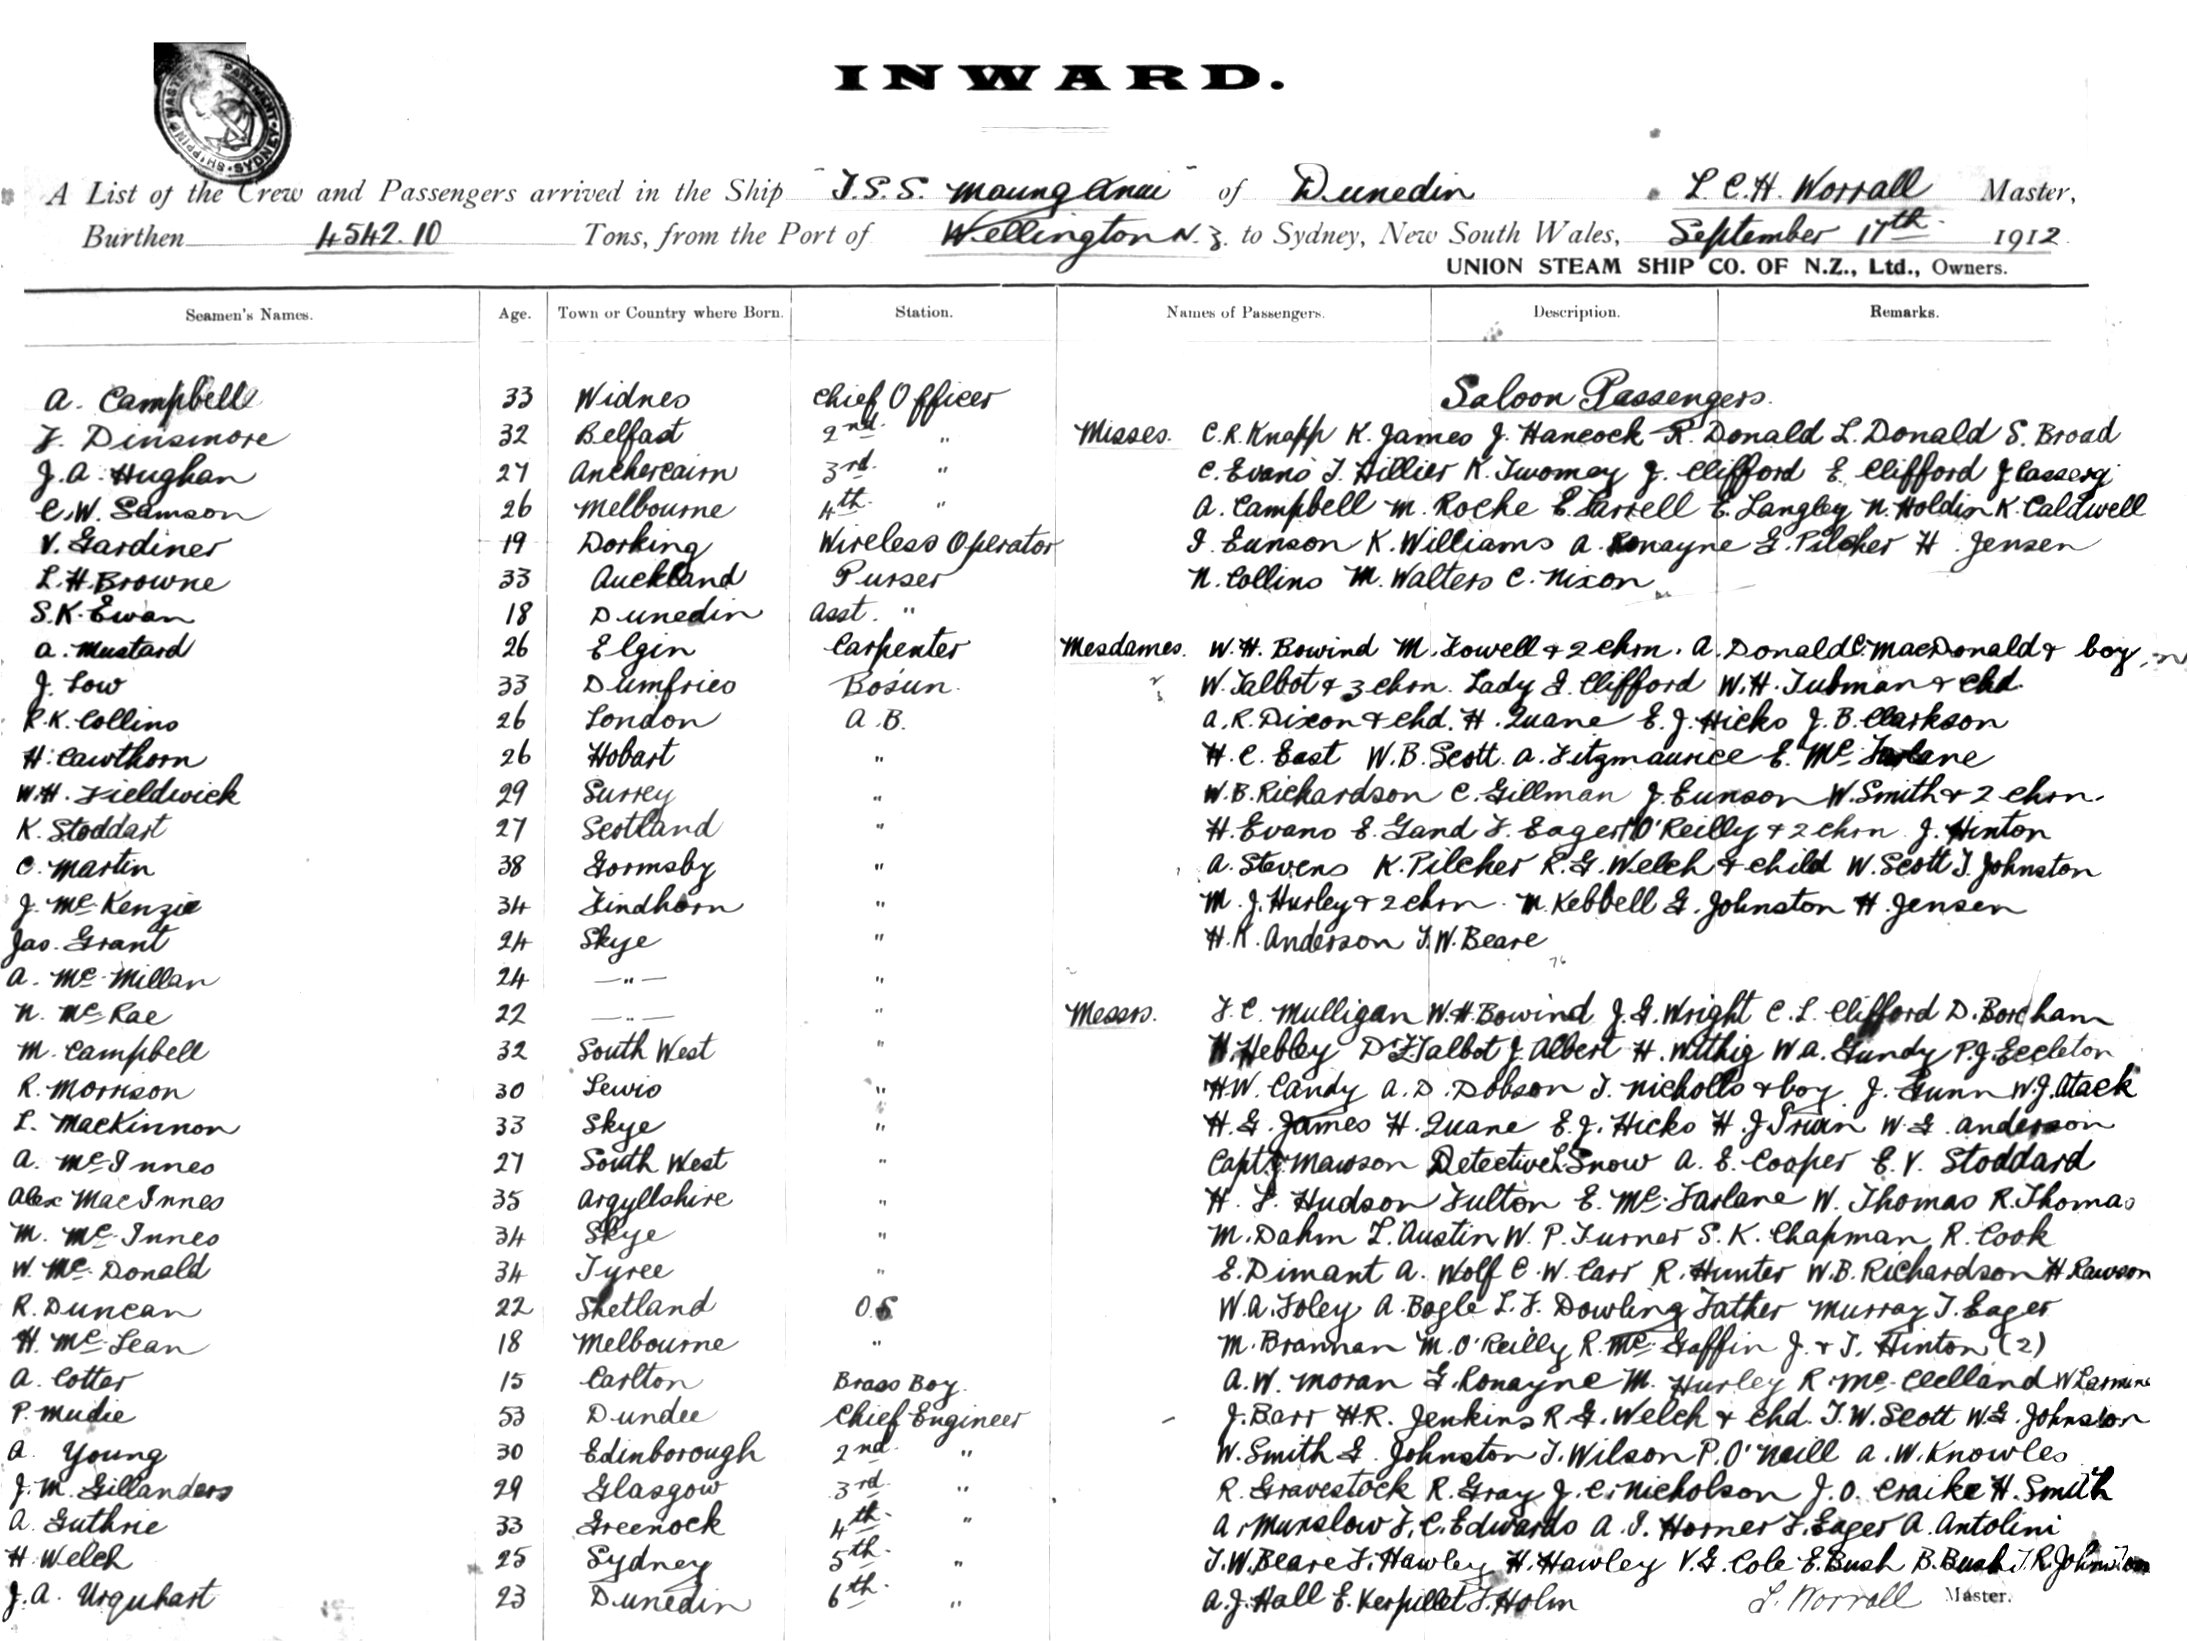 INWARD.
SHIPPING MASTER'S DEPARTMENT SYDNEY
A List of the Crew and Passengers arrived in the Ship "T.S.S. Maunganui" of Dunedin L. C. H. Worrall Master,
Burthen 4542.10 Tons, from the Port of Wellington N.Z. to Sydney, New South Wales, September 17th 1912
UNION STEAM SHIP CO. OF N.Z., Ltd., Owners.
Seamen's Names. Age. Town or Country where Born. Station. Names of Passengers. Description. Remarks.
Saloon Passengers.
A. Campbell 33 Widnes Chief Officer
F. Dinsmore 32 Belfast 2nd. " Misses. C.R. Knapp K. James J. Hancock R. Donald L. Donald S. Broad
J. A. Hughan 27 Auchercairn 3rd. " C. Evans T. Hillier K. Twomey J. Clifford E. Clifford J. Casserg
C. W. Samson 26 Melbourne 4th. " A. Campbell M. Roche E. Farrell E. Langley N. Holdin K. Caldwell
V. Gardiner 19 Dorking Wireless Operator I. Eunson K. Williams A. Ronayne E. Pilcher H. Jensen
L. H. Browne 33 Auckland Purser N. Collins M. Walters C. Nixon
S. K. Ewan 18 Dunedin Asst. "
A. Mustard 26 Elgin Carpenter Mesdames. W. H. Bowind M. Fowell & 2 chrn. A. Donald C. MacDonald & boy
J. Low 33 Dumfries Bosun. W. Talbot & 3 chrn. Lady I. Clifford W. H. Tubman & chd.
R. K. Collins 26 London A.B. A. R. Dixon & chd. H. Quane E. J. Hicks J. B. Clarkson
H. Cawthorn 26 Hobart " H. C. East W. B. Scott. A. Fitzmaurice E. Mc. Farlane
W. H. Fieldwick 29 Surrey " W. B. Richardson C. Gillman J. Eunson W. Smith & 2 chrn.
K. Stoddart 27 Scotland " H. Evans E. Gand F. Eager O'Reilly & 2 chrn J. Hinton
C. Martin 38 Gormsby " A. Stevens K. Pilcher R. G. Welch & child W. Scott T. Johnston
J. Mc. Kenzie 34 Findhorn " M. J. Hurley & 2 chrn. M. Kebbell G. Johnston H. Jensen
Jas. Grant 24 Skye " H. K. Anderson T. W. Beare
A. Mc. Millan 24 —"— "
N. Mc Rae 22 —"— " Messrs. F. C. Mulligan W. H. Bowind J. G. Wright C. L. Clifford D. Boreham
M. Campbell 32 South West " W. Hebley Dr F. Talbot J. Albert H. Withig W. A. Gundy P. J. Eccleton
R. Morrison 30 Lewis " H. W. Candy A. D. Dobson T. Nicholls & boy J. Gunn W. J. Atack
L. MacKinnon 33 Skye " H. G. James H. Quane E. J. Hicks H. J. W. G. Anderson
A. Mc. Innes 27 South West " Capt. Mawson Detective Snow A. E. Cooper E. V. Stoddard
Alex MacInnes 35 Argyllshire " H. L. Hudson Fulton E. Mc. Farlane W. Thomas R. Thomas
M. Mc. Innes 34 Skye " M. Dahm L. Austin W. P. Turner S. K. Chapman R. Cook
W. Mc. Donald 34 Tyree " E. Dimant A. Wolf C. W. Carr R. Hunter W. B. Richardson H Rawson
R. Duncan 22 Shetland O.S W. A. Foley A. Bogle L. F. Dowling Father Murray T. Eager
H. Mc. Lean 18 Melbourne " M. Brannan M. O'Reilly R. Mc. Gaffin J. & T. Hinton (2)
A. Cotter 15 Carlton Brass Boy. A. W. Moran G. Ronayne M. Hurley R. Mc. Clelland W
P. Mudie 53 Dundee Chief Engineer J. Barr H. R. Jenkins R. G. Welch & chd. T. W. Scott W. G. Johnston
A. Young 30 Edinborough 2nd. " W. Smith G. Johnston T. Wilson P. O'Neill A. W. Knowles
J. M. Gillanders 29 Glasgow 3rd. " R. Gravestock R. Gray J. C. Nicholson J. O. Craike H. Smith
A. Guthrie 33 Greenock 4th. " A. Munslow F. C. Edwards A. I. Horner F. Eager A. Antolini
H. Welch 25 Sydney 5th. " T. W. Beare F. Hawley H. Hawley V. G. Cole E. Bush B. Bush T. R. Johnston
J. A. Urquhart 23 Dunedin 6th. " A. J. Hall E. Kerpillet F. Holm L. Worrall Master.